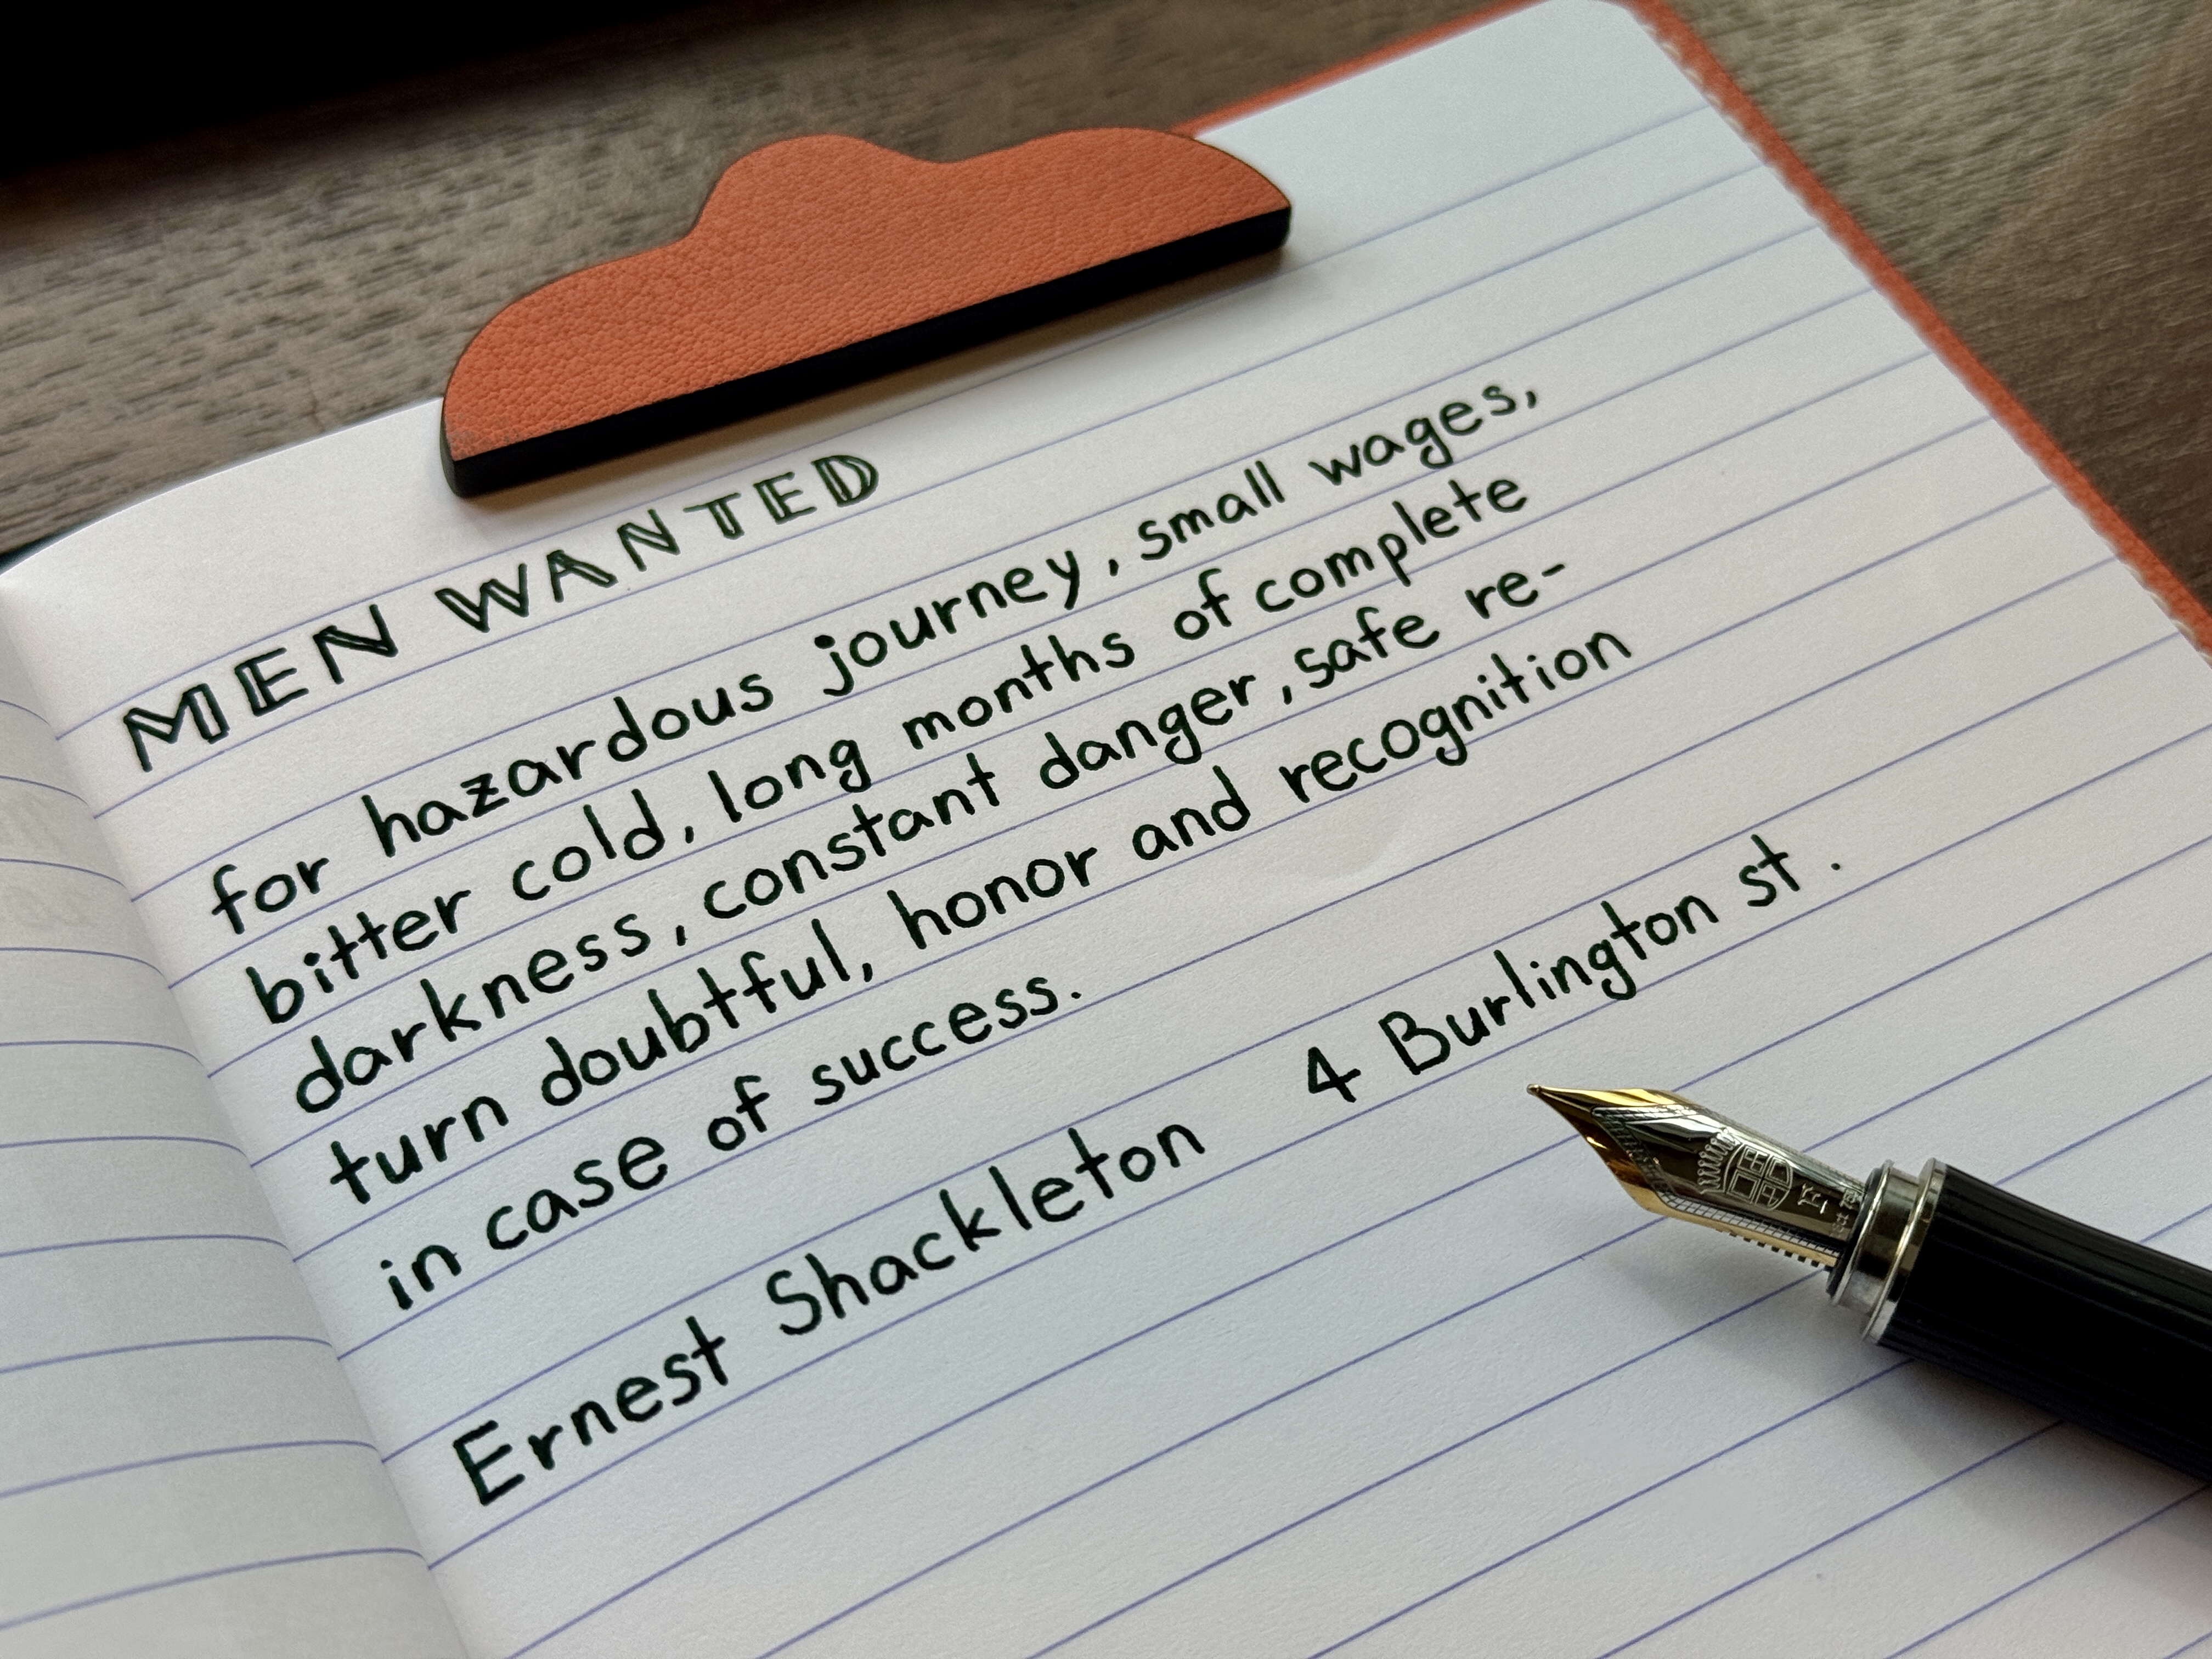 MEN WANTED
for hazardous journey, small wages,
bitter cold, long months of complete
darkness, constant danger, safe re-
turn doubtful, honor and recognition
in case of success.
Ernest Shackleton 4 Burlington st.